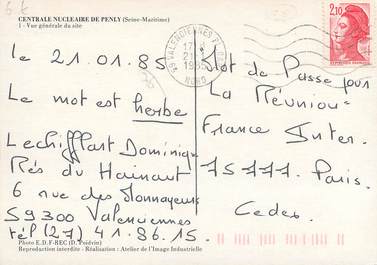 6 €
CENTRALE NUCLEAIRE DE PENLY (Seine-Maritime)
1 - Vue générale du site
le 21.01.85
Le mot est herbe
Lechifflart Dominique
Rés du Hainaut
6 rue des Monnayeurs
59300 Valenciennes
tél (27) 41.86.15.
Photo E.D.F-REC (D. Poidvin)
Reproduction interdite - Réalisation : Atelier de l'Image Industrielle
59 VALENCIENNES
17 H
21-1
1985
NORD
2,10
Mot de Passe pour
La Réunion
France Inter.
75777 Paris.
Cedex